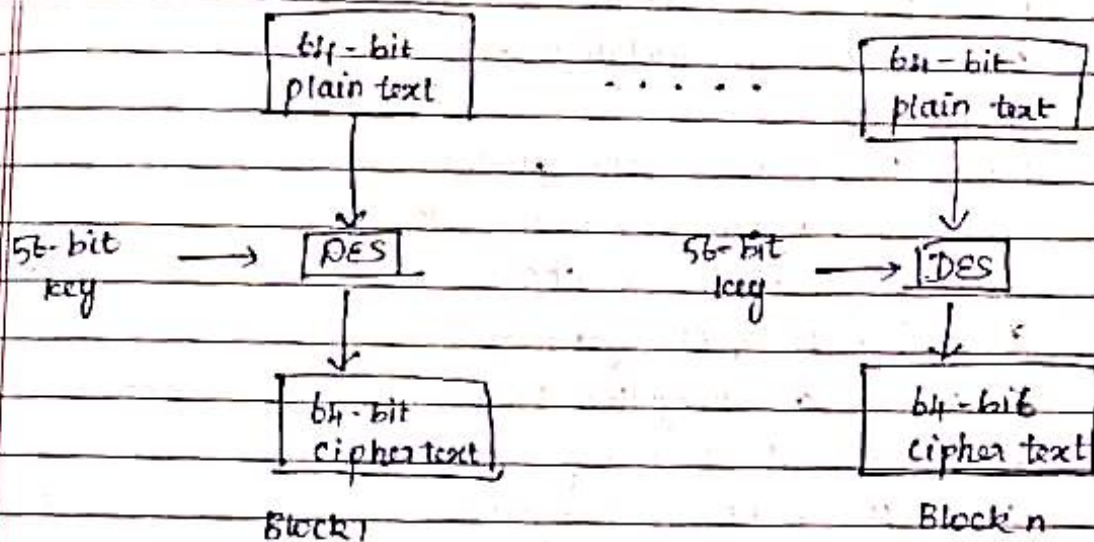 64-bit
plain text
. . . . .
64-bit
plain text
56-bit
key
DES
56-bit
key
DES
64-bit
cipher text
64-bit
cipher text
Block 1
Block n